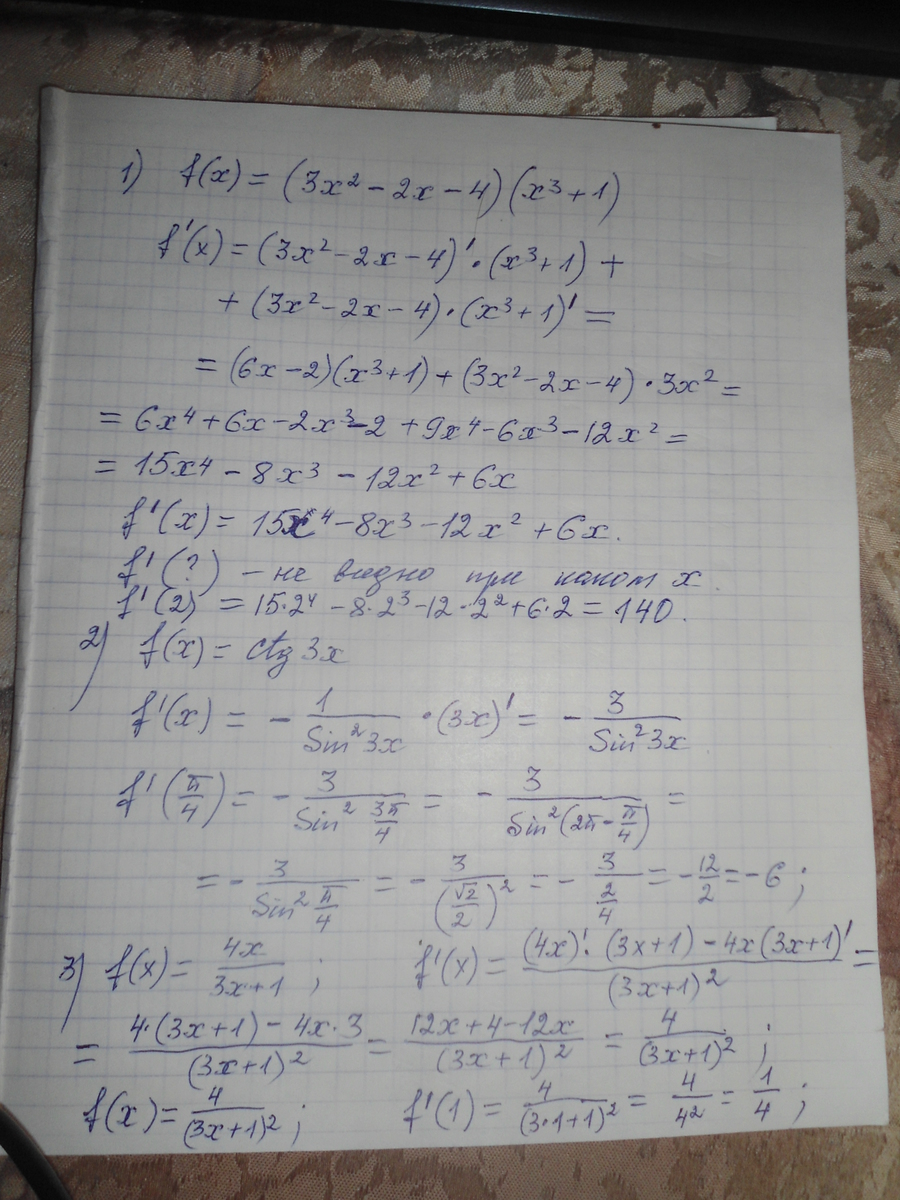 1) f(x) = (3x² − 2x − 4)(x³ + 1)
f'(x) = (3x² − 2x − 4)' · (x³ + 1) +
+ (3x² − 2x − 4) · (x³ + 1)' =
= (6x − 2)(x³ + 1) + (3x² − 2x − 4) · 3x² =
= 6x⁴ + 6x − 2x³ − 2 + 9x⁴ − 6x³ − 12x² =
= 15x⁴ − 8x³ − 12x² + 6x
f'(x) = 15x⁴ − 8x³ − 12x² + 6x.
f'(?) − не видно при каком x
f'(2) = 15·2⁴ − 8·2³ − 12·2² + 6·2 = 140.
2) f(x) = ctg 3x
f'(x) = − 1/(Sin² 3x) · (3x)' = − 3/(Sin² 3x)
f'(π/4) = − 3/(Sin² 3π/4) = − 3/(Sin² (2π − π/4)) =
= − 3/(Sin² π/4) = − 3/(√2/2)² = − 3/(2/4) = − 12/2 = − 6 ;
3) f(x) = 4x/(3x + 1) ; f'(x) = ((4x)' · (3x + 1) − 4x(3x + 1)')/(3x + 1)² =
= (4·(3x + 1) − 4x · 3)/(3x + 1)² = (12x + 4 − 12x)/(3x + 1)² = 4/(3x + 1)² ;
f(x) = 4/(3x + 1)² ; f'(1) = 4/(3·1 + 1)² = 4/4² = 1/4 ;